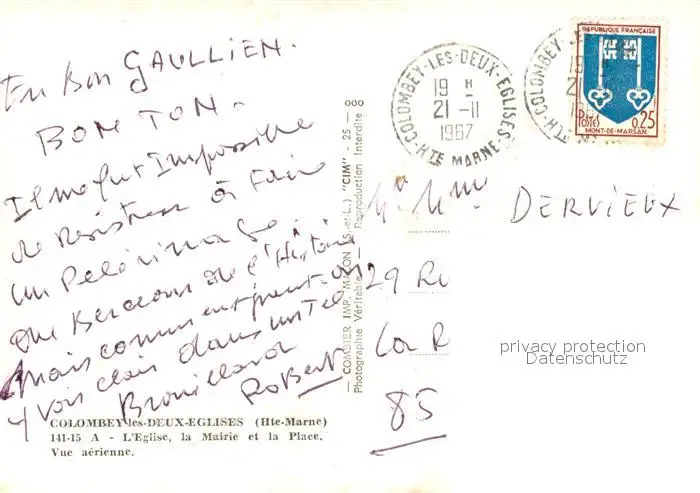 En Bon GAULLIEN.
BON TON.
Il me fut Impossible
de Résister à faire
un Pélérinage
au Berceau de l'Histoire
Mais comment peut-on
y voir clair dans un tel
Brouillard
Robert
COLOMBEY-les-DEUX-EGLISES (Hte-Marne)
141-15 A - L'Eglise, la Mairie et la Place.
Vue aérienne.
— COMBIER IMP. MACON (S.-et-L.) "CIM" - 25 — 000
Photographie Véritable - Reproduction Interdite
COLOMBEY-LES-DEUX-EGLISES
19 H
21-11
1967
HTE MARNE
COLOMBEY
REPUBLIQUE FRANÇAISE
POSTES 0,25
MONT-DE-MARSAN
Mr Mme DERVIEUX
29 Ru
La R
85
privacy protection
Datenschutz